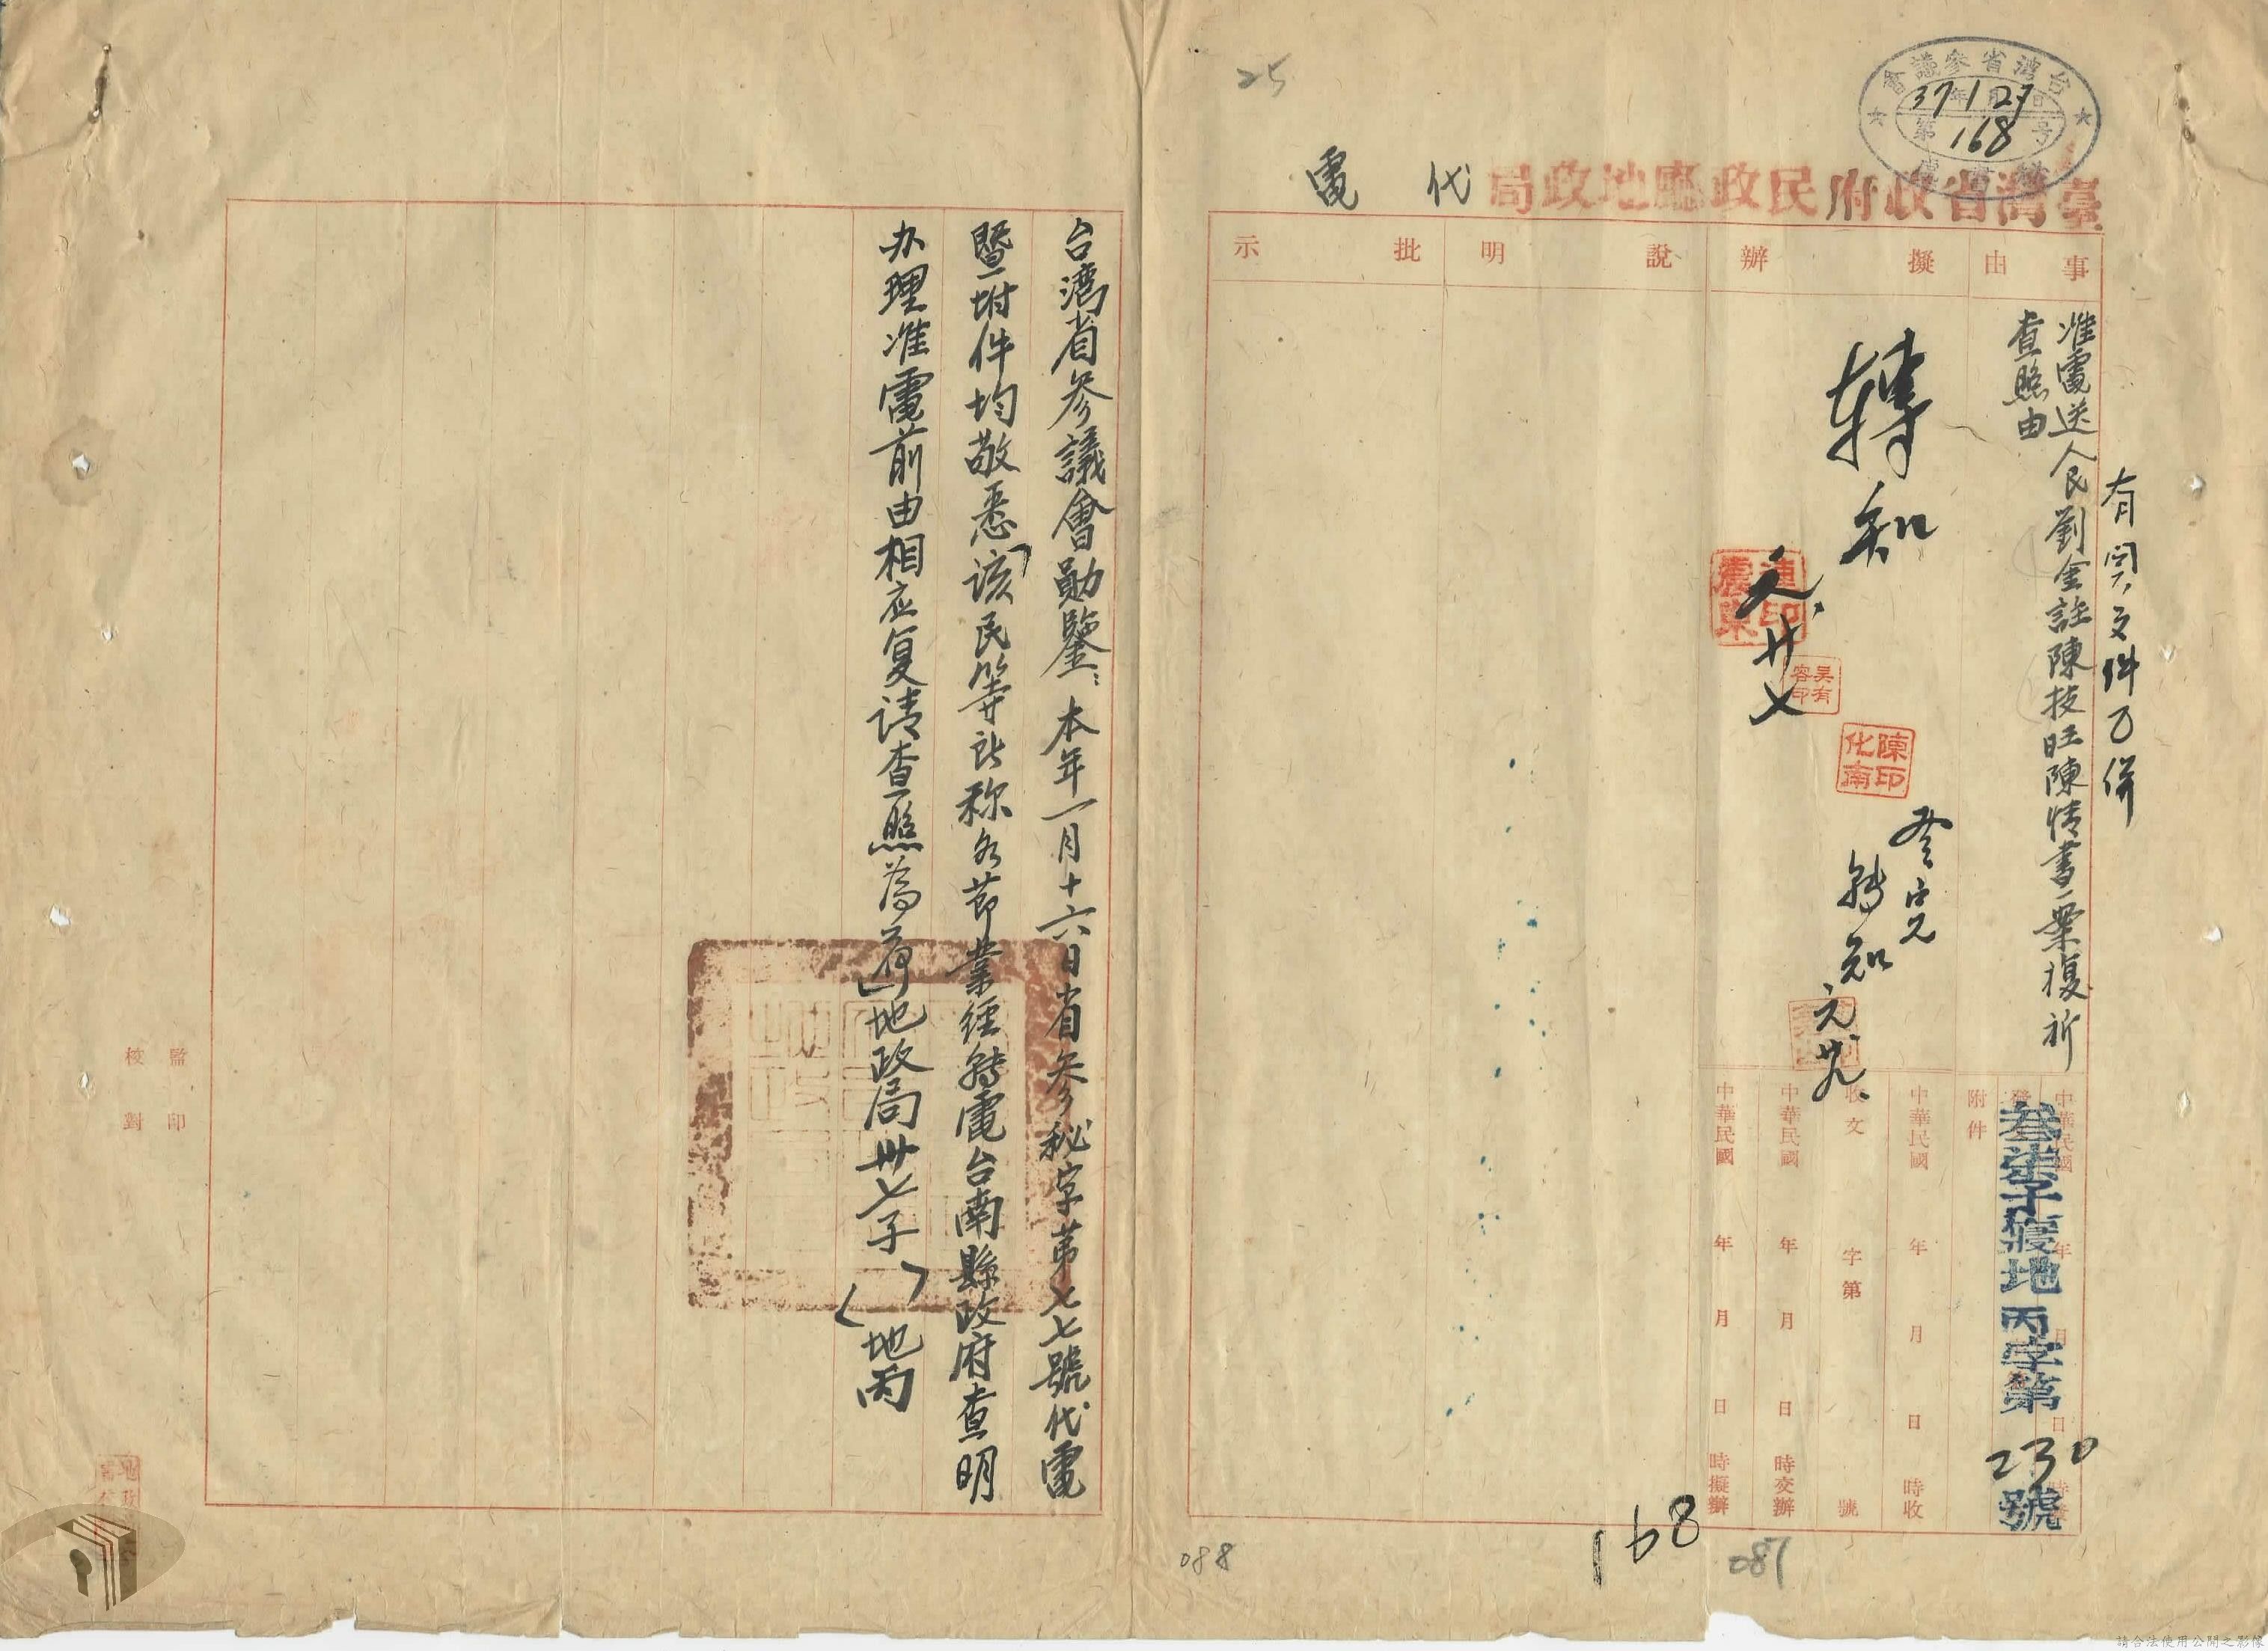 25
台灣省參議會
37年1月27日
第168号
臺灣省政府民政廳地政局代電
事由
擬辦
說明
批示
有関文件乃併
准電送人民劉金註陳技旺陳情書一案複祈
查照由
轉知
元、廿七
連印震東
吳有容印
陳印化南
轉知
元
中華民國 年 月 日 時
附件
中華民國 年 月 日 時收
收文 字第 號
中華民國 年 月 日 時交辦
中華民國 年 月 日 時擬辦
叁柒子 地丙字第230號
168
087
088
台灣省参議會勛鑒：本年一月十六日省参秘字第七七號代電
暨附件均敬悉「該民等訴称各節業經轉電台南縣政府查明
办理准電前由相应复请查照為荷」地政局卅七子（ ）地丙
監印
校對
請合法使用公開之影像